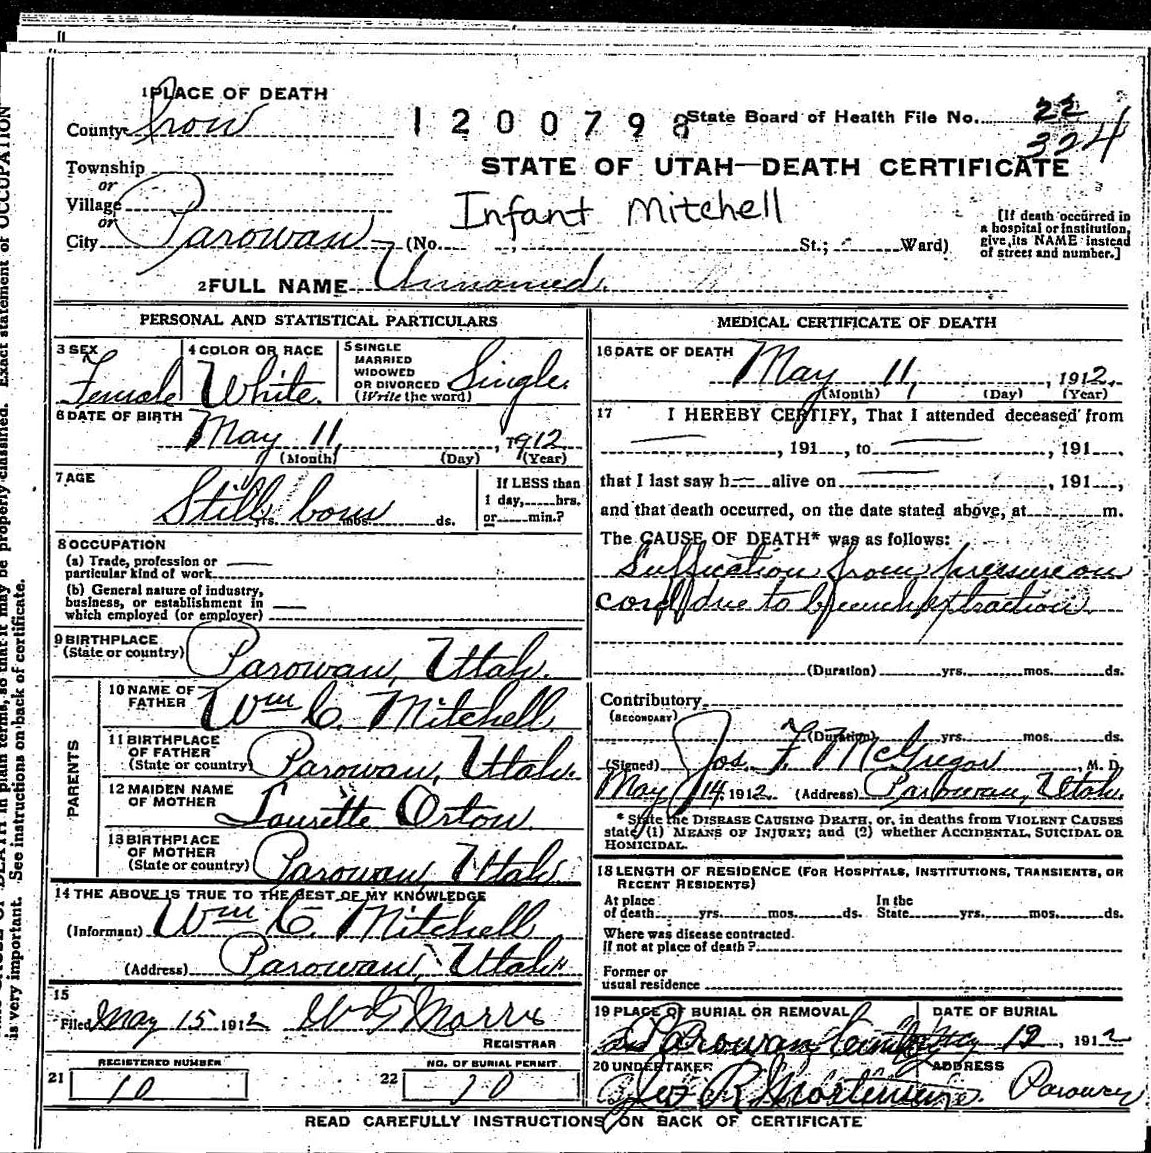 1 PLACE OF DEATH
County Iron
1200798
State Board of Health File No. 22
324
Township
or
Village
or
City Parowan (No. St.; Ward)
STATE OF UTAH—DEATH CERTIFICATE
Infant Mitchell
[If death occurred in
a hospital or institution,
give its NAME instead
of street and number.]
2 FULL NAME Unnamed.
PERSONAL AND STATISTICAL PARTICULARS
3 SEX
Female
4 COLOR OR RACE
White.
5 SINGLE
MARRIED
WIDOWED
OR DIVORCED
(Write the word)
Single.
6 DATE OF BIRTH
May 11, 1912
(Month) (Day) (Year)
7 AGE
Still born
yrs. mos. ds.
If LESS than
1 day, hrs.
or min.?
8 OCCUPATION
(a) Trade, profession or
particular kind of work
(b) General nature of industry,
business, or establishment in
which employed (or employer)
9 BIRTHPLACE
(State or country)
Parowan, Utah.
PARENTS
10 NAME OF
FATHER
Wm C. Mitchell
11 BIRTHPLACE
OF FATHER
(State or country)
Parowan, Utah.
12 MAIDEN NAME
OF MOTHER
Laurette Orton.
13 BIRTHPLACE
OF MOTHER
(State or country)
Parowan, Utah
14 THE ABOVE IS TRUE TO THE BEST OF MY KNOWLEDGE
(Informant) Wm C. Mitchell
(Address) Parowan, Utah
15
Filed May 15 1912
REGISTRAR
REGISTERED NUMBER
21 10
NO. OF BURIAL PERMIT
22 10
MEDICAL CERTIFICATE OF DEATH
16 DATE OF DEATH
May 11, 1912.
(Month) (Day) (Year)
17 I HEREBY CERTIFY, That I attended deceased from
, 191 , to , 191 ,
that I last saw h alive on , 191 ,
and that death occurred, on the date stated above, at m.
The CAUSE OF DEATH* was as follows:
Suffication from pressure on
cord due to breech extraction.
(Duration) yrs. mos. ds.
Contributory
(SECONDARY)
(Duration) yrs. mos. ds.
(Signed) Jos. F. McGregor, M. D.
May 14, 1912. (Address) Parowan, Utah.
* State the DISEASE CAUSING DEATH, or, in deaths from VIOLENT CAUSES
state (1) MEANS OF INJURY; and (2) whether ACCIDENTAL, SUICIDAL OR
HOMICIDAL.
18 LENGTH OF RESIDENCE (FOR HOSPITALS, INSTITUTIONS, TRANSIENTS, OR
RECENT RESIDENTS)
At place
of death yrs. mos. ds.
In the
State yrs. mos. ds.
Where was disease contracted
if not at place of death?
Former or
usual residence
19 PLACE OF BURIAL OR REMOVAL
Parowan
DATE OF BURIAL
May 12, 1912
20 UNDERTAKER
R Mortensen
ADDRESS
Parowan
READ CAREFULLY INSTRUCTIONS ON BACK OF CERTIFICATE
DEATH in plain terms, so that it may be properly classified. Exact statement of OCCUPATION
is very important. See instructions on back of certificate.